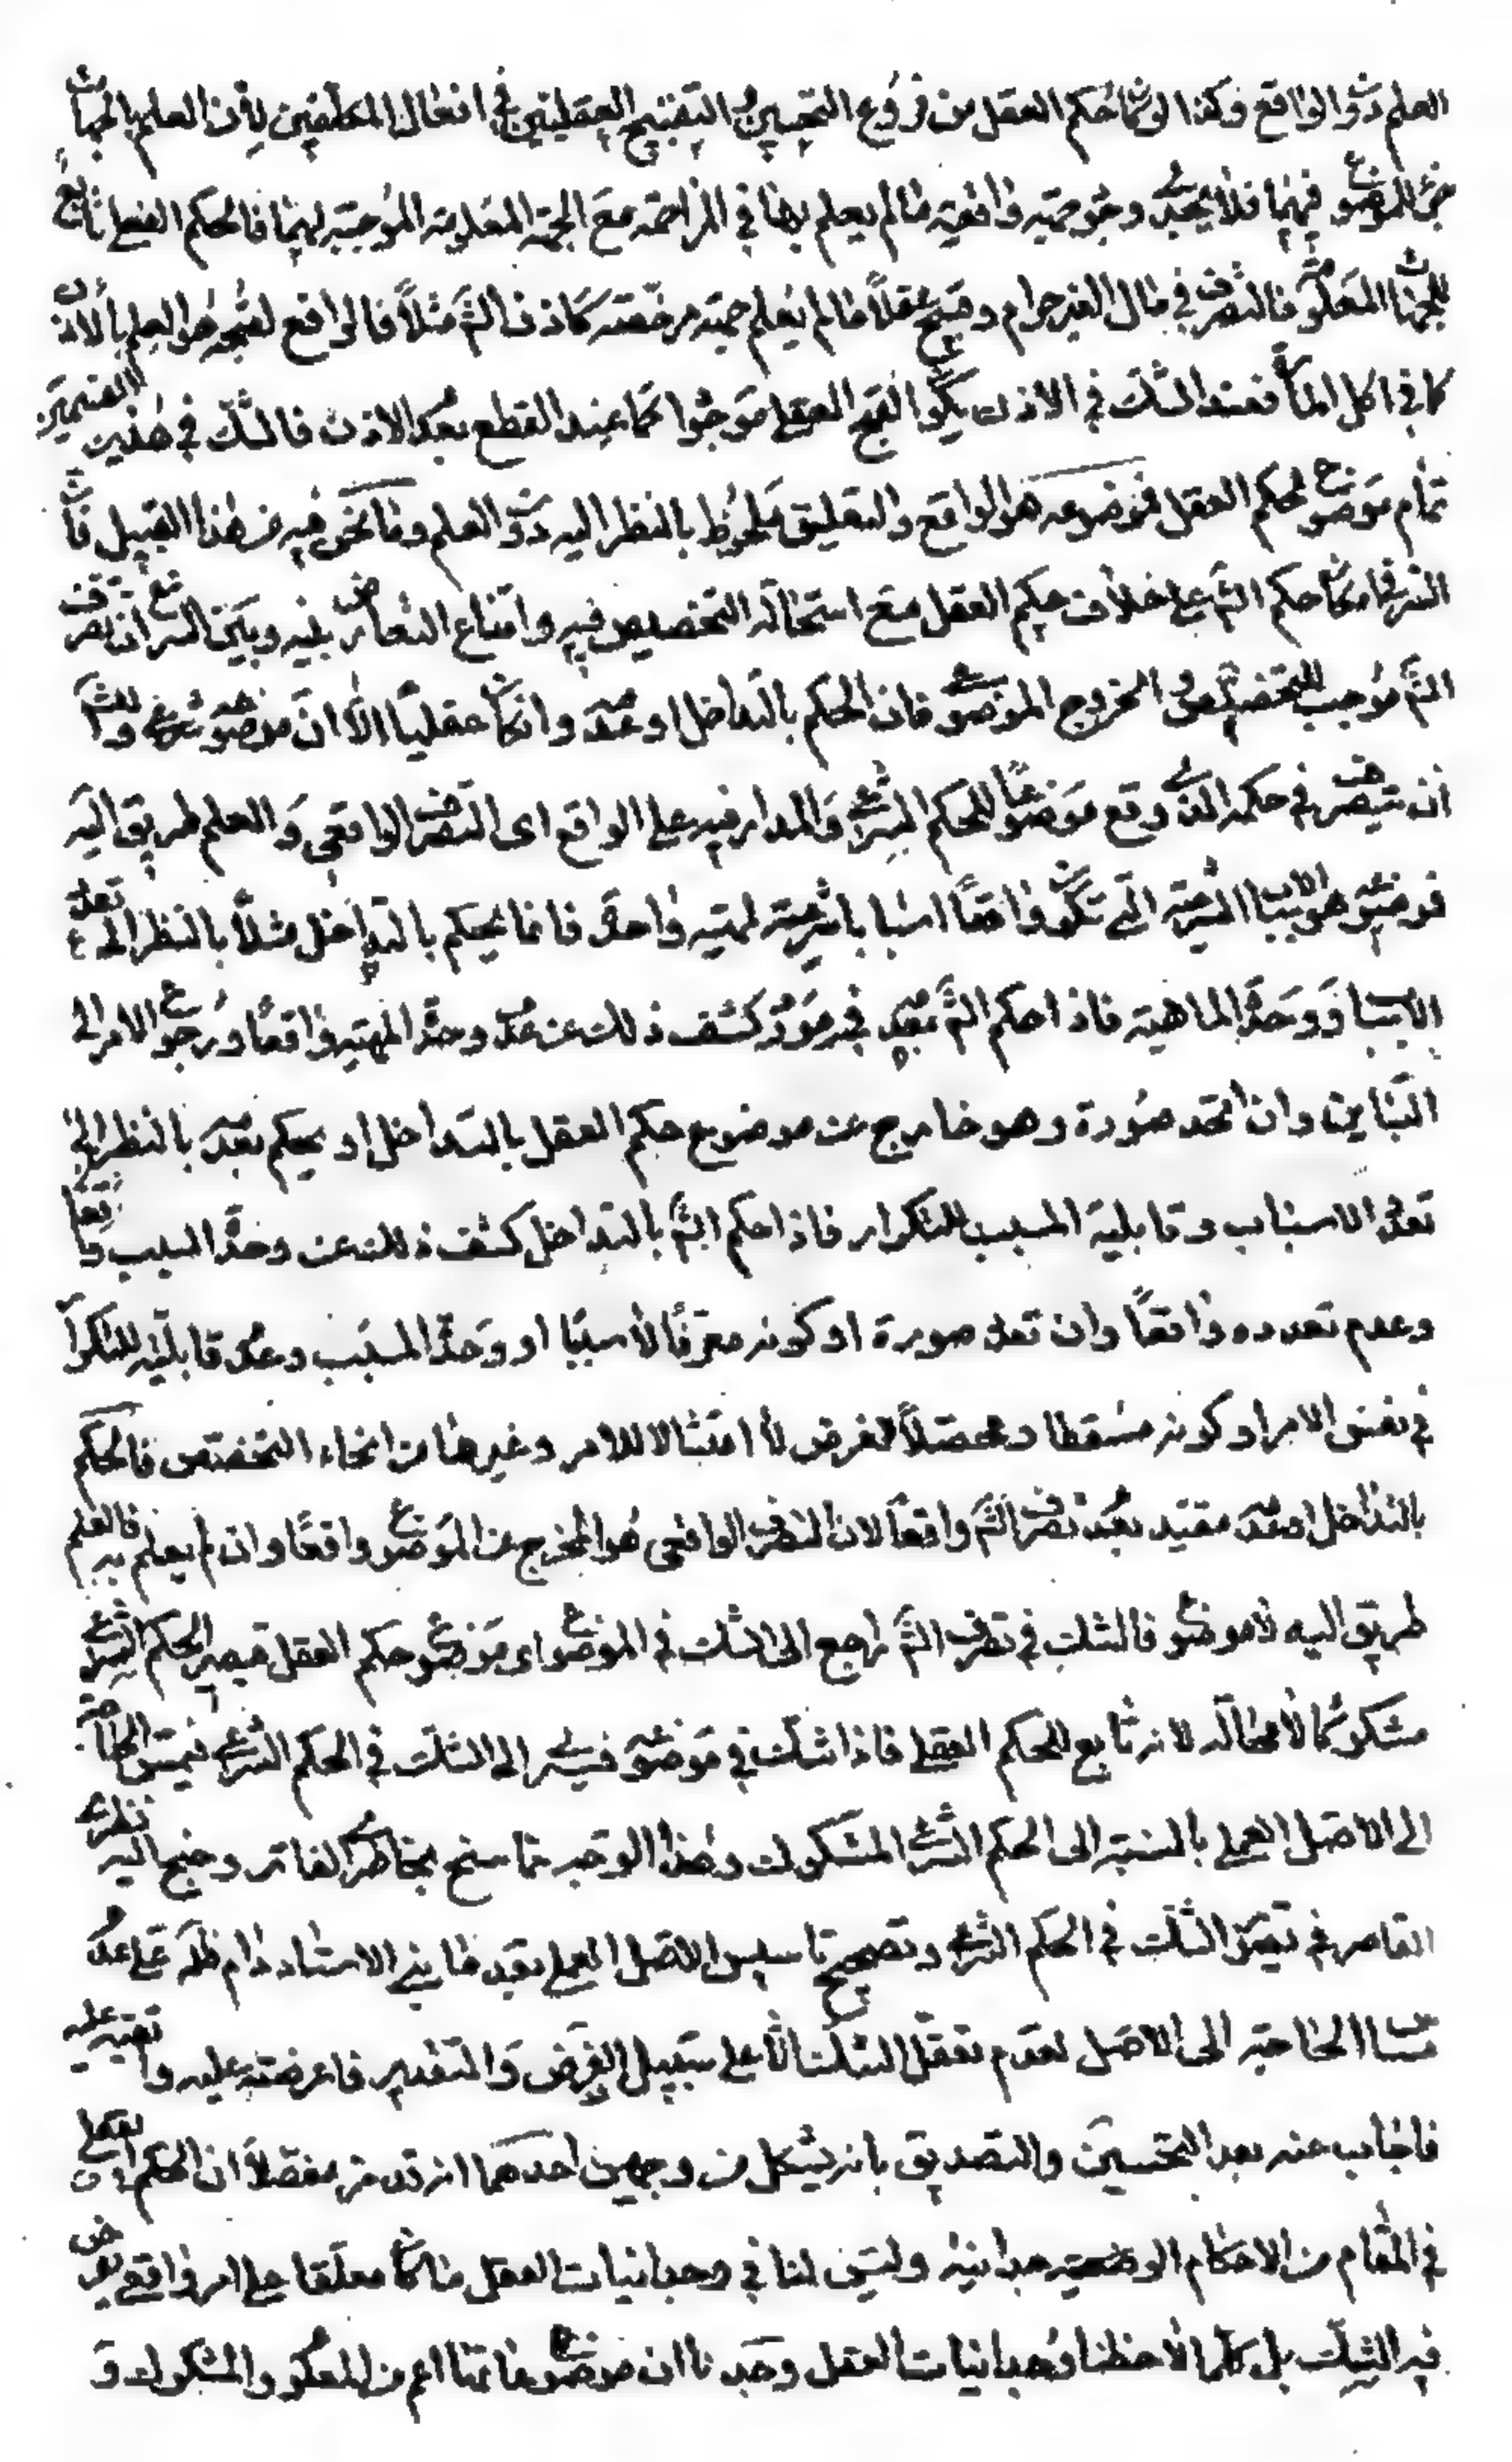 العلم دون الواقع وكذا لو كان حكم العقل من فروع التحسين والتقبيح العقليين في افعال المكلفين فان العلم بالجهات
جزء للموضوع فيهما فلا يجدي وجود جهة واقعية ما لم يعلم بها في المزاحمة مع الجهة المعلومة الموجبة لهما فالحكم الفعلي تابع
للجهات المعلومة فالتصرف في مال الغير حرام وقبيح عقلاً ما لم يعلم جهة مرخصة كاذن الش مثلاً فالواقع لقبحه هو العلم بالاذن
كما في اكل المال فعند الشك في الاذن يكون القبح العقلي موجودا كما عند القطع بعدم الاذن فالشك في هذين القسمين
تمام موضوع لحكم العقل فموضوعه هو الواقع والتعليق ملحوظ بالنظر اليه دون العلم وما نحن فيه من هذا القبيل فان
السر في امكان حكم الش على خلاف حكم العقل مع استحالة التخصيص فيه وامتناع التعارض بينه وبين الشرع ان تصرف
الش موجب للتخصص والخروج الموضوعي فان الحكم بالتداخل او عدمه وان كان عقلياً الا ان موضوعه شرعي وللش
ان يتصرف في حكمه الذي وقع موضوعاً للحكم الشرعي والمدار فيه على الواقع اى التصرف الواقعي والعلم طريق اليه
فموضوعه هو الاسباب الشرعية التي تكون واقعاً اسبابا شرعية لمهية واحدة فانما يحكم بالتداخل مثلاً بالنظر الى تعدد
الاسباب ووحدة الماهية فاذا حكم الش بعدمه في مورد كشف ذلك عن عدم وحدة المهية واقعاً ورجوع الامر الى
التباين وان اتحد صورة وهو خارج عن موضوع حكم العقل بالتداخل او يحكم بعدمه بالنظر الى
تعدد الاسباب وقابلية المسبب للتكرار فاذا حكم الش بالتداخل كشف ذلك عن وحدة السبب واقعا
وعدم تعدده واقعاً وان تعدد صورة او كونه معرفاً لا سبباً او وحدة المسبب وعدم قابليته للتكرار
في نفس الامر او كونه مسقطا ومحصلاً للغرض لا امتثالا للامر وغيرها من انحاء التخصص فالحكم
بالتداخل او عدمه مقيد بعدم تصرف الش واقعاً لان التصرف الواقعي هو المخرج عن الموضوع واقعاً وان لم يعلم به فالعلم
طريق اليه لا موضوع فالشك في تصرف الش راجع الى الشك في الموضوع اى موضوع حكم العقل فيصير الحكم الشرعي
مشكوكا لا محالة لانه تابع للحكم العقلي فاذا شك في موضوعه فيسري الى الشك في الحكم الشرعي فيمس الحاجة
الى الاصل العملي بالنسبة الى الحكم الشرعي المشكوك وهذا الوجه مما سنح بخاطري الفاتر وجنح اليه نظري
القاصر في تعقل الشك في الحكم الشرعي وتصحيح تاسيس الاصل العملي بعد ما بنى الاستاد دام ظله على عدم
مساس الحاجة الى الاصل لعدم تعقل الشك الا على سبيل الفرض والتقدير فاعرضته عليه
فاجاب عنه بعد التحسين والتصديق بانه يشكل من وجهين احدهما انه قد مر مفصلاً ان الحكم العقلي
في المقام من الاحكام الوضعية وجدانية وليس لنا في وجدانيات العقل ما كان معلقا على امر واقعي يعرض
فيه الشك بل كلما لاحظنا وجدانيات العقل وجدنا ان موضوعاتها اعم من المعلوم والمشكوك و